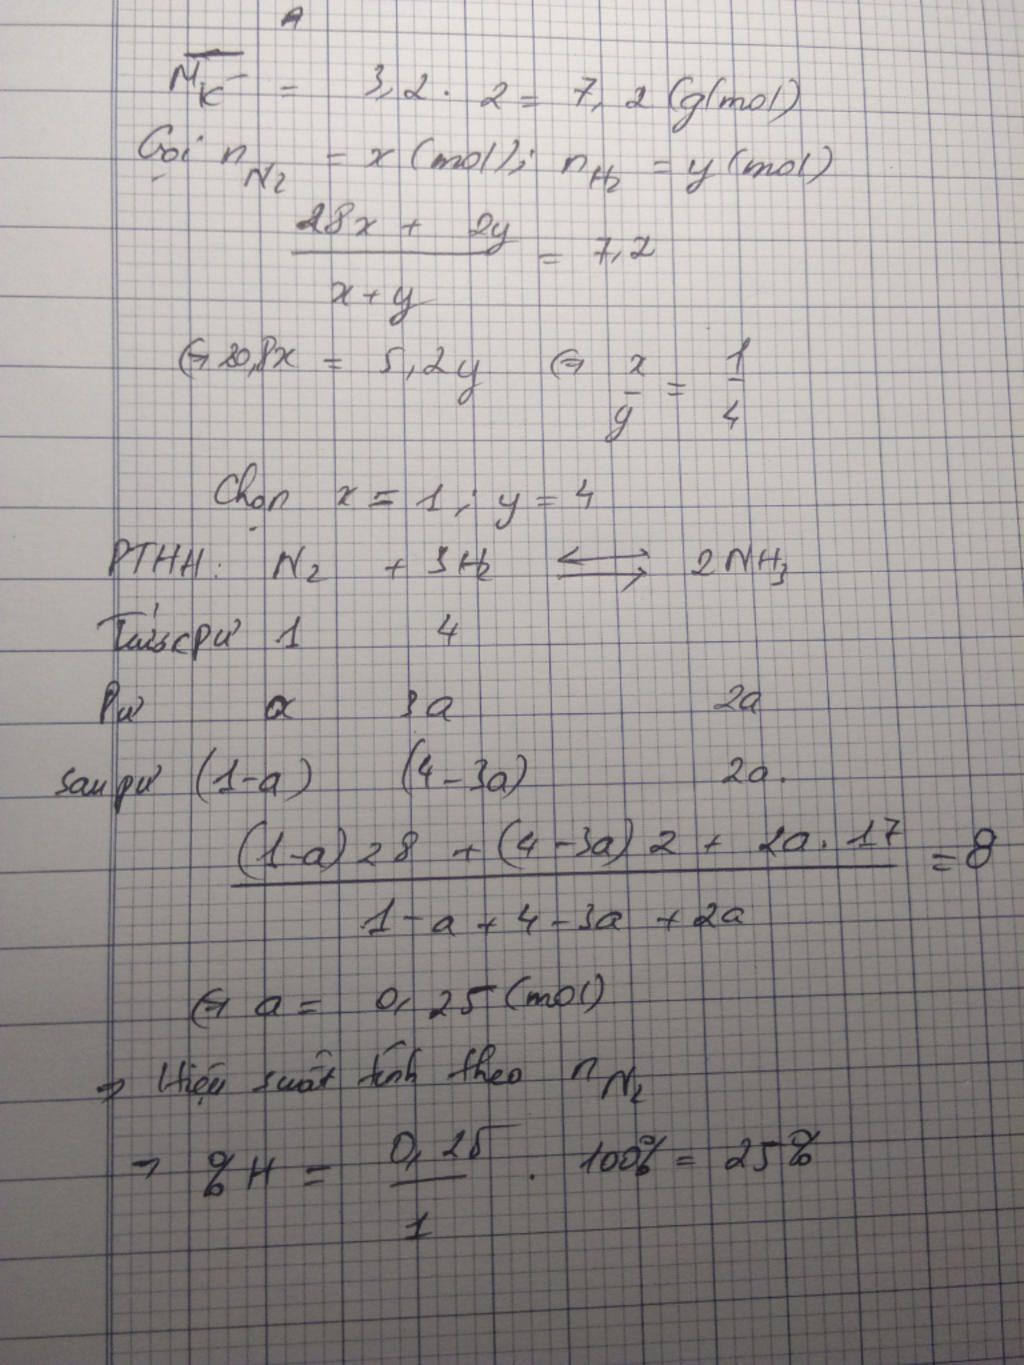 A
M̅_K = 3,2 . 2 = 7,2 (g/mol)
Gọi n_N2 = x (mol); n_H2 = y (mol)
(28x + 2y) / (x + y) = 7,2
⇔ 20,8x = 5,2y ⇔ x/y = 1/4
Chọn x = 1; y = 4
PTHH: N2 + 3H2 ⇌ 2NH3
1 4
Pư a 3a 2a
sau pư (1-a) (4-3a) 2a.
((1-a) 28 + (4-3a) 2 + 2a . 17) / (1 - a + 4 - 3a + 2a) = 8
⇔ a = 0,25 (mol)
⇒ Hiệu suất tính theo n_N2
⇒ %H = 0,25/1 . 100% = 25%